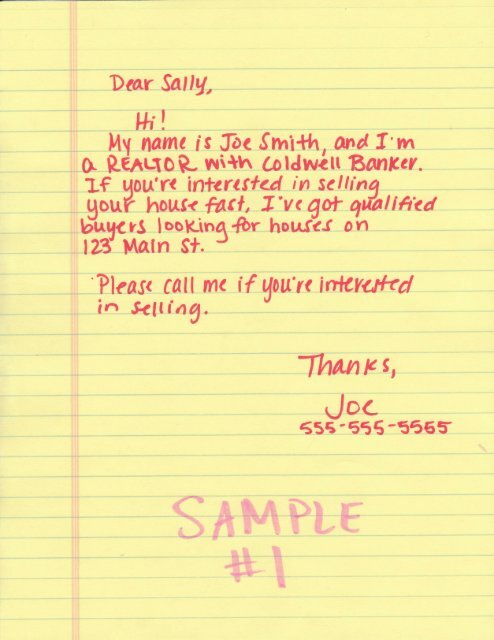 Dear Sally,
Hi!
My name is Joe Smith, and I'm
a REALTOR with Coldwell Banker.
If you're interested in selling
your house fast, I've got qualified
buyers looking for houses on
123 Main St.
Please call me if you're interested
in selling.
Thanks,
Joe
555-555-5565
SAMPLE
#1